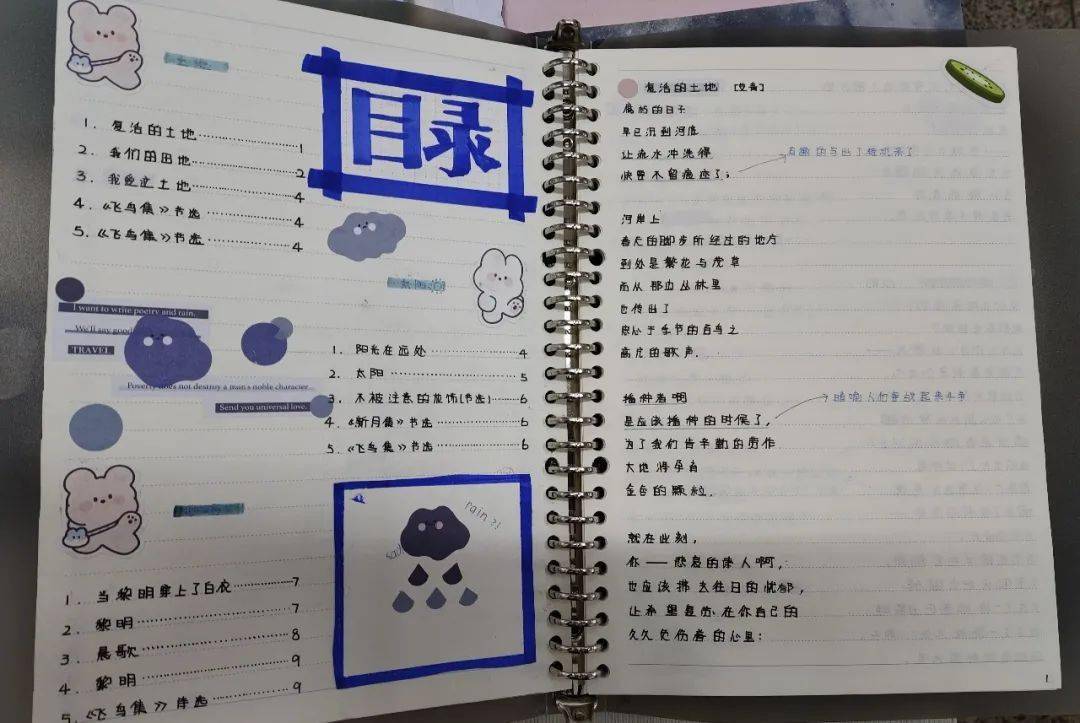 目录
土地
1. 复活的土地 1
2. 我们的田地 2
3. 我爱这土地 4
4. 《飞鸟集》节选 4
5. 《飞鸟集》节选 4
I want to write poetry and rain.
We'll say good
TRAVEL
Poverty does not destroy a man's noble character
Send you universal love.
太阳
1. 阳光在远处 4
2. 太阳 5
3. 不被注意的花饰(节选) 6
4. 《新月集》节选 6
5. 《飞鸟集》节选 6
rain ?!
1. 当黎明穿上了白衣 7
2. 黎明 7
3. 晨歌 8
4. 黎明 9
5. 《飞鸟集》节选 9
复活的土地 [艾青]
腐朽的日子
早已沉到河底
让流水冲洗得
快要不留痕迹了;
河岸上
春天的脚步所经过的地方
到处是繁花与茂草
而从那边丛林里
也传出了
忠心于季节的百鸟之
高亢的歌声.
播种者啊
是应该播种的时候了,
为了我们肯辛勤的劳作
大地将孕育
金色的颗粒.
就在此刻,
你——悲哀的诗人啊,
也应该拂去往日的忧郁,
让希望复苏在你自己的
久久负伤着的心里:
1